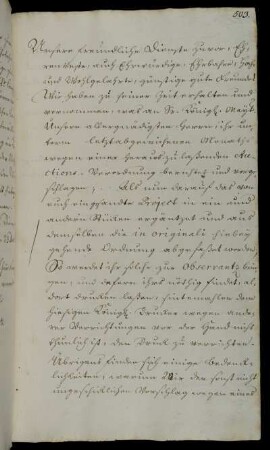 503.
Unsere freundliche Dienste zuvor, Eh-
renveste, auch Ehrwürdige, Ehrbahre, Hoch
und Wohlgelahrte, günstige gute Freunde.
Wir haben zu seiner Zeit erhalten und
vernommen, was an Se. Königl. Mayt.
Unsern allergnädigsten Herrn, ihr un-
term letztabgewichenen Monaths
wegen einer heraus zu lassenden Auc-
tions-Verordnung berichtet und vorge-
schlagen; Als nun darauf das von
euch eingesandte Project in ein und
andern Stücken ergäntzet und aus
demselben die in Originali hiebey
gehende Ordnung abgefasset worden,
So werdet ihr solche zur Observantz brin-
gen, und dafern ihrs nöthig findet, al-
dort drucken laßen, sintemahlen dem
hiesigen Königl. Drucker wegen ande-
rer Verrichtungen vor der Hand nicht
thunlich ist, den Druck zu verrichten.
Übrigens finden sich einige bedenck-
lichkeiten, warum Wir den sonst nicht
ungeschicklichen Vorschlag wegen eines